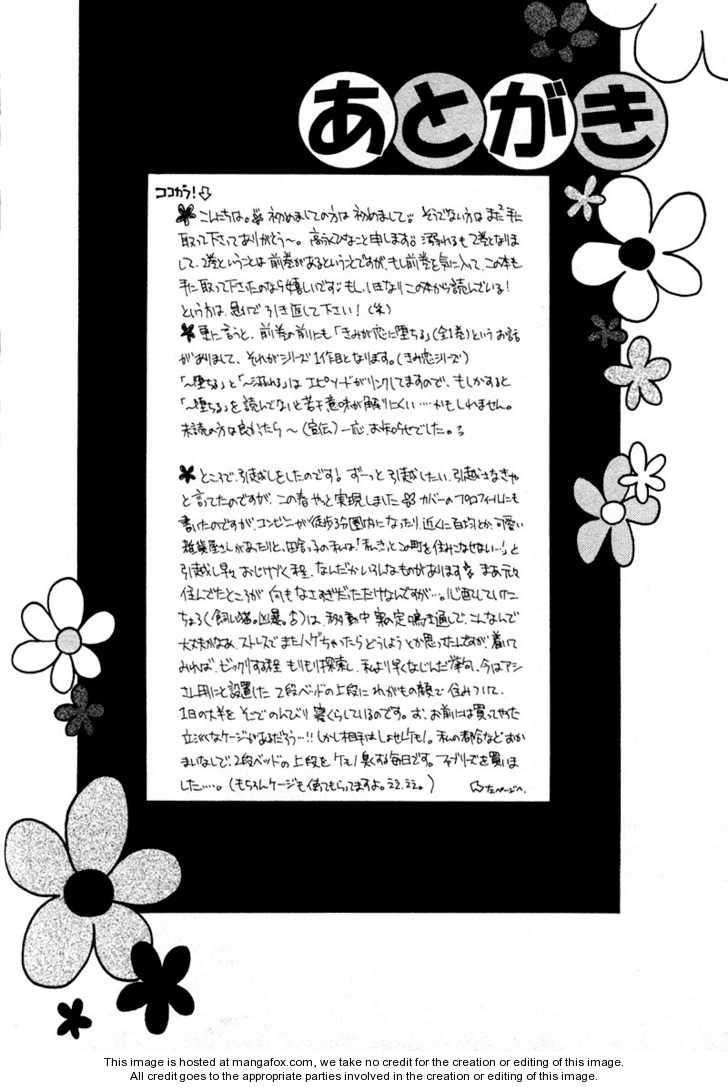 あとがき
ココから!
こんにちは。初めましての方は初めまして。そうでない方はまたまた手に
取って下さってありがとう〜。高うひなこと申します。溺れるも2巻となりま
して、2巻ということは前巻があるということですが、もし前巻を気に入って、この本も
手に取って下さったのなら嬉しいです!もし、いきなりこの本から読んでいる!
という方は、急いで引き返して下さい!(笑)
更に言うと、前巻の前にも「きみが恋に堕ちる」(全1巻)というお話
がありまして、それがシリーズ1作目となります。(きみ恋シリーズ)
「〜堕ちる」と「〜溺れる」はエピソードがリンクしてますので、もしかすると
「〜堕ちる」を読んでないと若干意味が解りにくい……かもしれません。
未読の方は良かったら〜(宣伝)一応、お知らせでした。
ところで、引越しをしたのです!ずーっと引越したい、引越さなきゃ
と言ってたのですが、この春やっと実現しました カバーのプロフィールにも
書いたのですが、コンビニが徒歩3分圏内になったり、近くに百均とか、可愛い
雑貨屋さんがあったりと、田舎っ子の私は、「私、きっとこの町を住みこなせない…!」と
引越し早々おじけづく程、なんだかいろんなものがあります まあ元々
住んでたところが何もなさすぎだっただけなんですが…。心配していた
ちょろ(飼い猫。凶暴。♂)は、移動中 案の定鳴き通しで、こんなんで
大丈夫かなあ、ストレスでまたハゲちゃったらどうしようとか思ったんですが、着いて
みれば、ビックリする程もりもり探索し、私より早くなじんだ挙句、今はアシ
さん用にと設置した2段ベッドの上段にわがもの顔で住みついて、
1日の大半をそこでのんびり寝くらしているのです。お、お前には買ってやった
立派なケージがあるだろう…!!しかし相手はしょせんケモノ。私の都合などおか
まいなしで、2段ベッドの上段をケモノ臭くする毎日です。ファブリーズを買いま
した….。(もちろんケージも使ってもらってますよ。ユユ。ユユ。)
左ページへ。
This image is hosted at mangafox.com, we take no credit for the creation or editing of this image.
All credit goes to the appropriate parties involved in the creation or editing of this image.